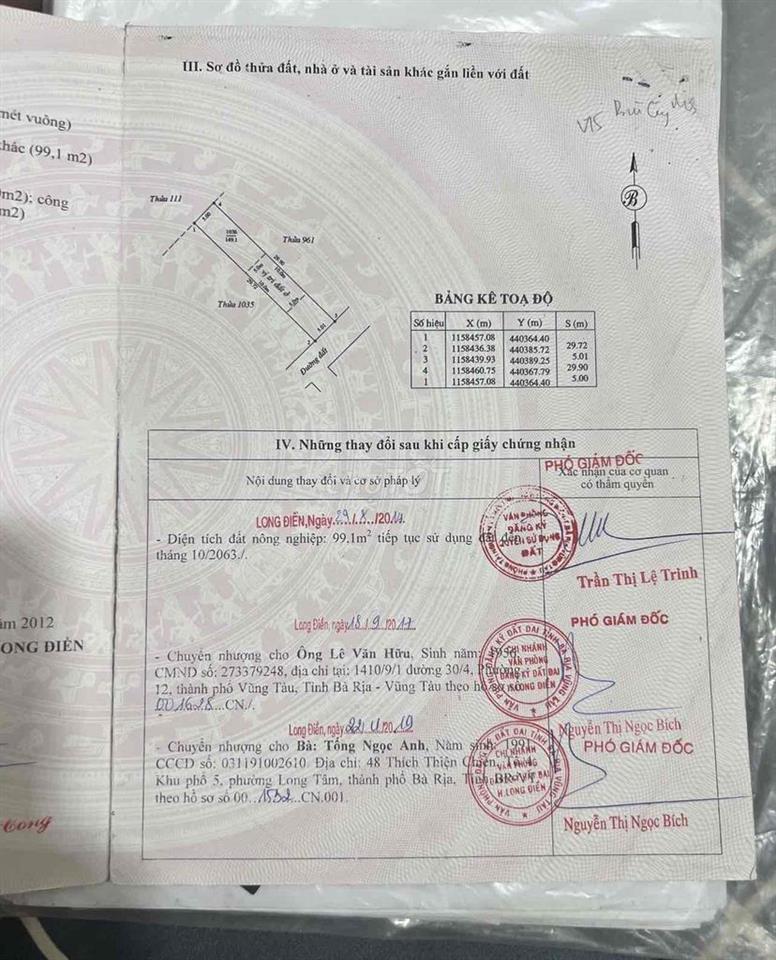 III. Sơ đồ thửa đất, nhà ở và tài sản khác gắn liền với đất
mét vuông)
khác (99,1 m2)
m2); công
m2)
V15
Thửa 111
Thửa 961
1036
149.1
Thửa 1035
Đường đất
B
BẢNG KÊ TOẠ ĐỘ
Số hiệu X (m) Y (m) S (m)
1 1158457.08 440364.40
29.72
2 1158436.38 440385.72
5.01
3 1158439.93 440389.25
29.90
4 1158460.75 440367.79
5.00
1 1158457.08 440364.40
IV. Những thay đổi sau khi cấp giấy chứng nhận
Nội dung thay đổi và cơ sở pháp lý
PHÓ GIÁM ĐỐC
Xác nhận của cơ quan
có thẩm quyền
LONG ĐIỀN, Ngày 29/8/2017
- Diện tích đất nông nghiệp: 99.1m² tiếp tục sử dụng đất đến
tháng 10/2063./.
VĂN PHÒNG
ĐĂNG KÝ
QUYỀN SỬ DỤNG
ĐẤT
Trần Thị Lệ Trinh
Long Điền, ngày 18/9/2017
PHÓ GIÁM ĐỐC
- Chuyển nhượng cho Ông Lê Văn Hữu, Sinh năm: 1956,
CMND số: 273379248, địa chỉ tại: 1410/9/1 đường 30/4, Phường
12, thành phố Vũng Tàu, Tỉnh Bà Rịa - Vũng Tàu theo hồ sơ số
001628...CN./.
CHI NHÁNH
VĂN PHÒNG
ĐĂNG KÝ ĐẤT ĐAI
H.LONG ĐIỀN
Nguyễn Thị Ngọc Bích
Long Điền, ngày 22/11/2019
PHÓ GIÁM ĐỐC
- Chuyển nhượng cho Bà: Tống Ngọc Anh, Năm sinh: 1991,
CCCD số: 031191002610. Địa chỉ: 48 Thích Thiện Chiếu, Tổ 4,
Khu phố 5, phường Long Tâm, thành phố Bà Rịa, Tỉnh BR-VT
theo hồ sơ số 00...1532...CN.001.
CHI NHÁNH
VĂN PHÒNG
ĐĂNG KÝ ĐẤT ĐAI
H.LONG ĐIỀN
Nguyễn Thị Ngọc Bích
năm 2012
LONG ĐIỀN
Công